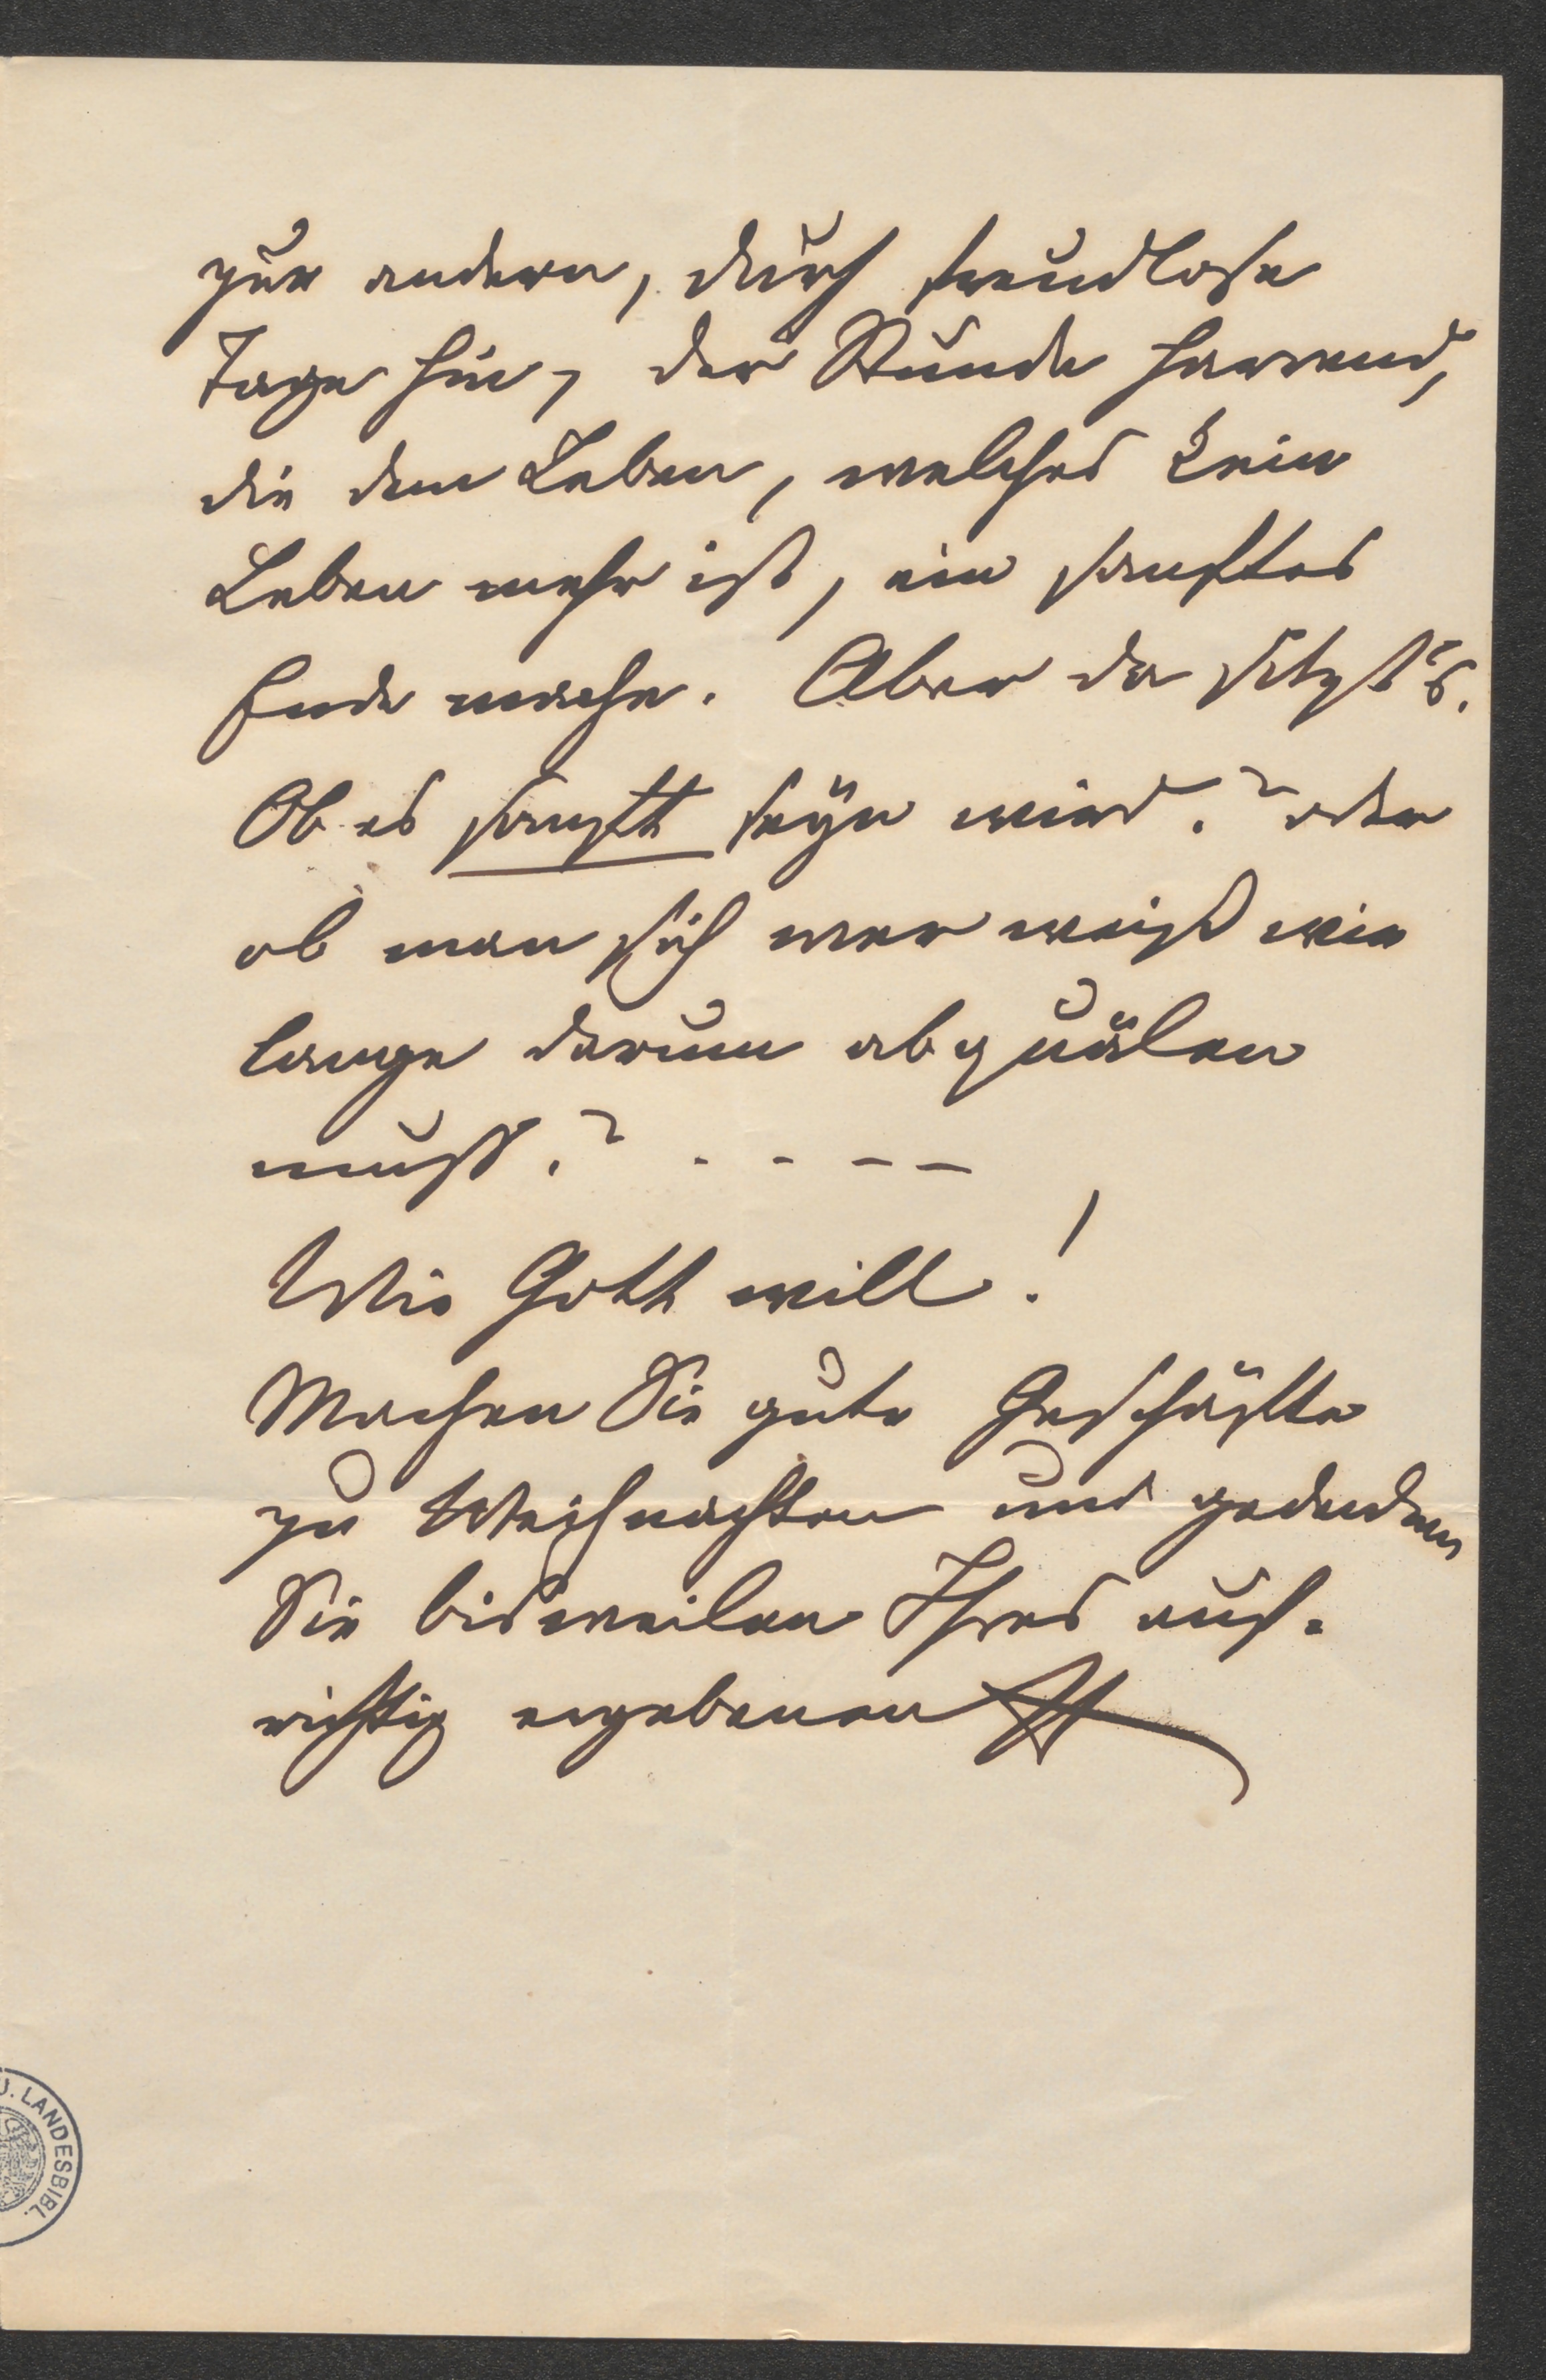 zur andern, durch freudlose
Tage hin, der Stunde harrend,
die dem Leben, welches kein
Leben mehr ist, ein sanftes
Ende mache. Aber da sitzt's.
Ob es sanft seyn wird? oder
ob man sich wer weiß wie
lange darum abquälen
muß? - - - -
Wie Gott will!
Machen Sie gute Geschäfte
zu Weihnachten und gedenken
Sie bisweilen Ihres auf-
richtig ergebenen
J. LANDESBIBL.